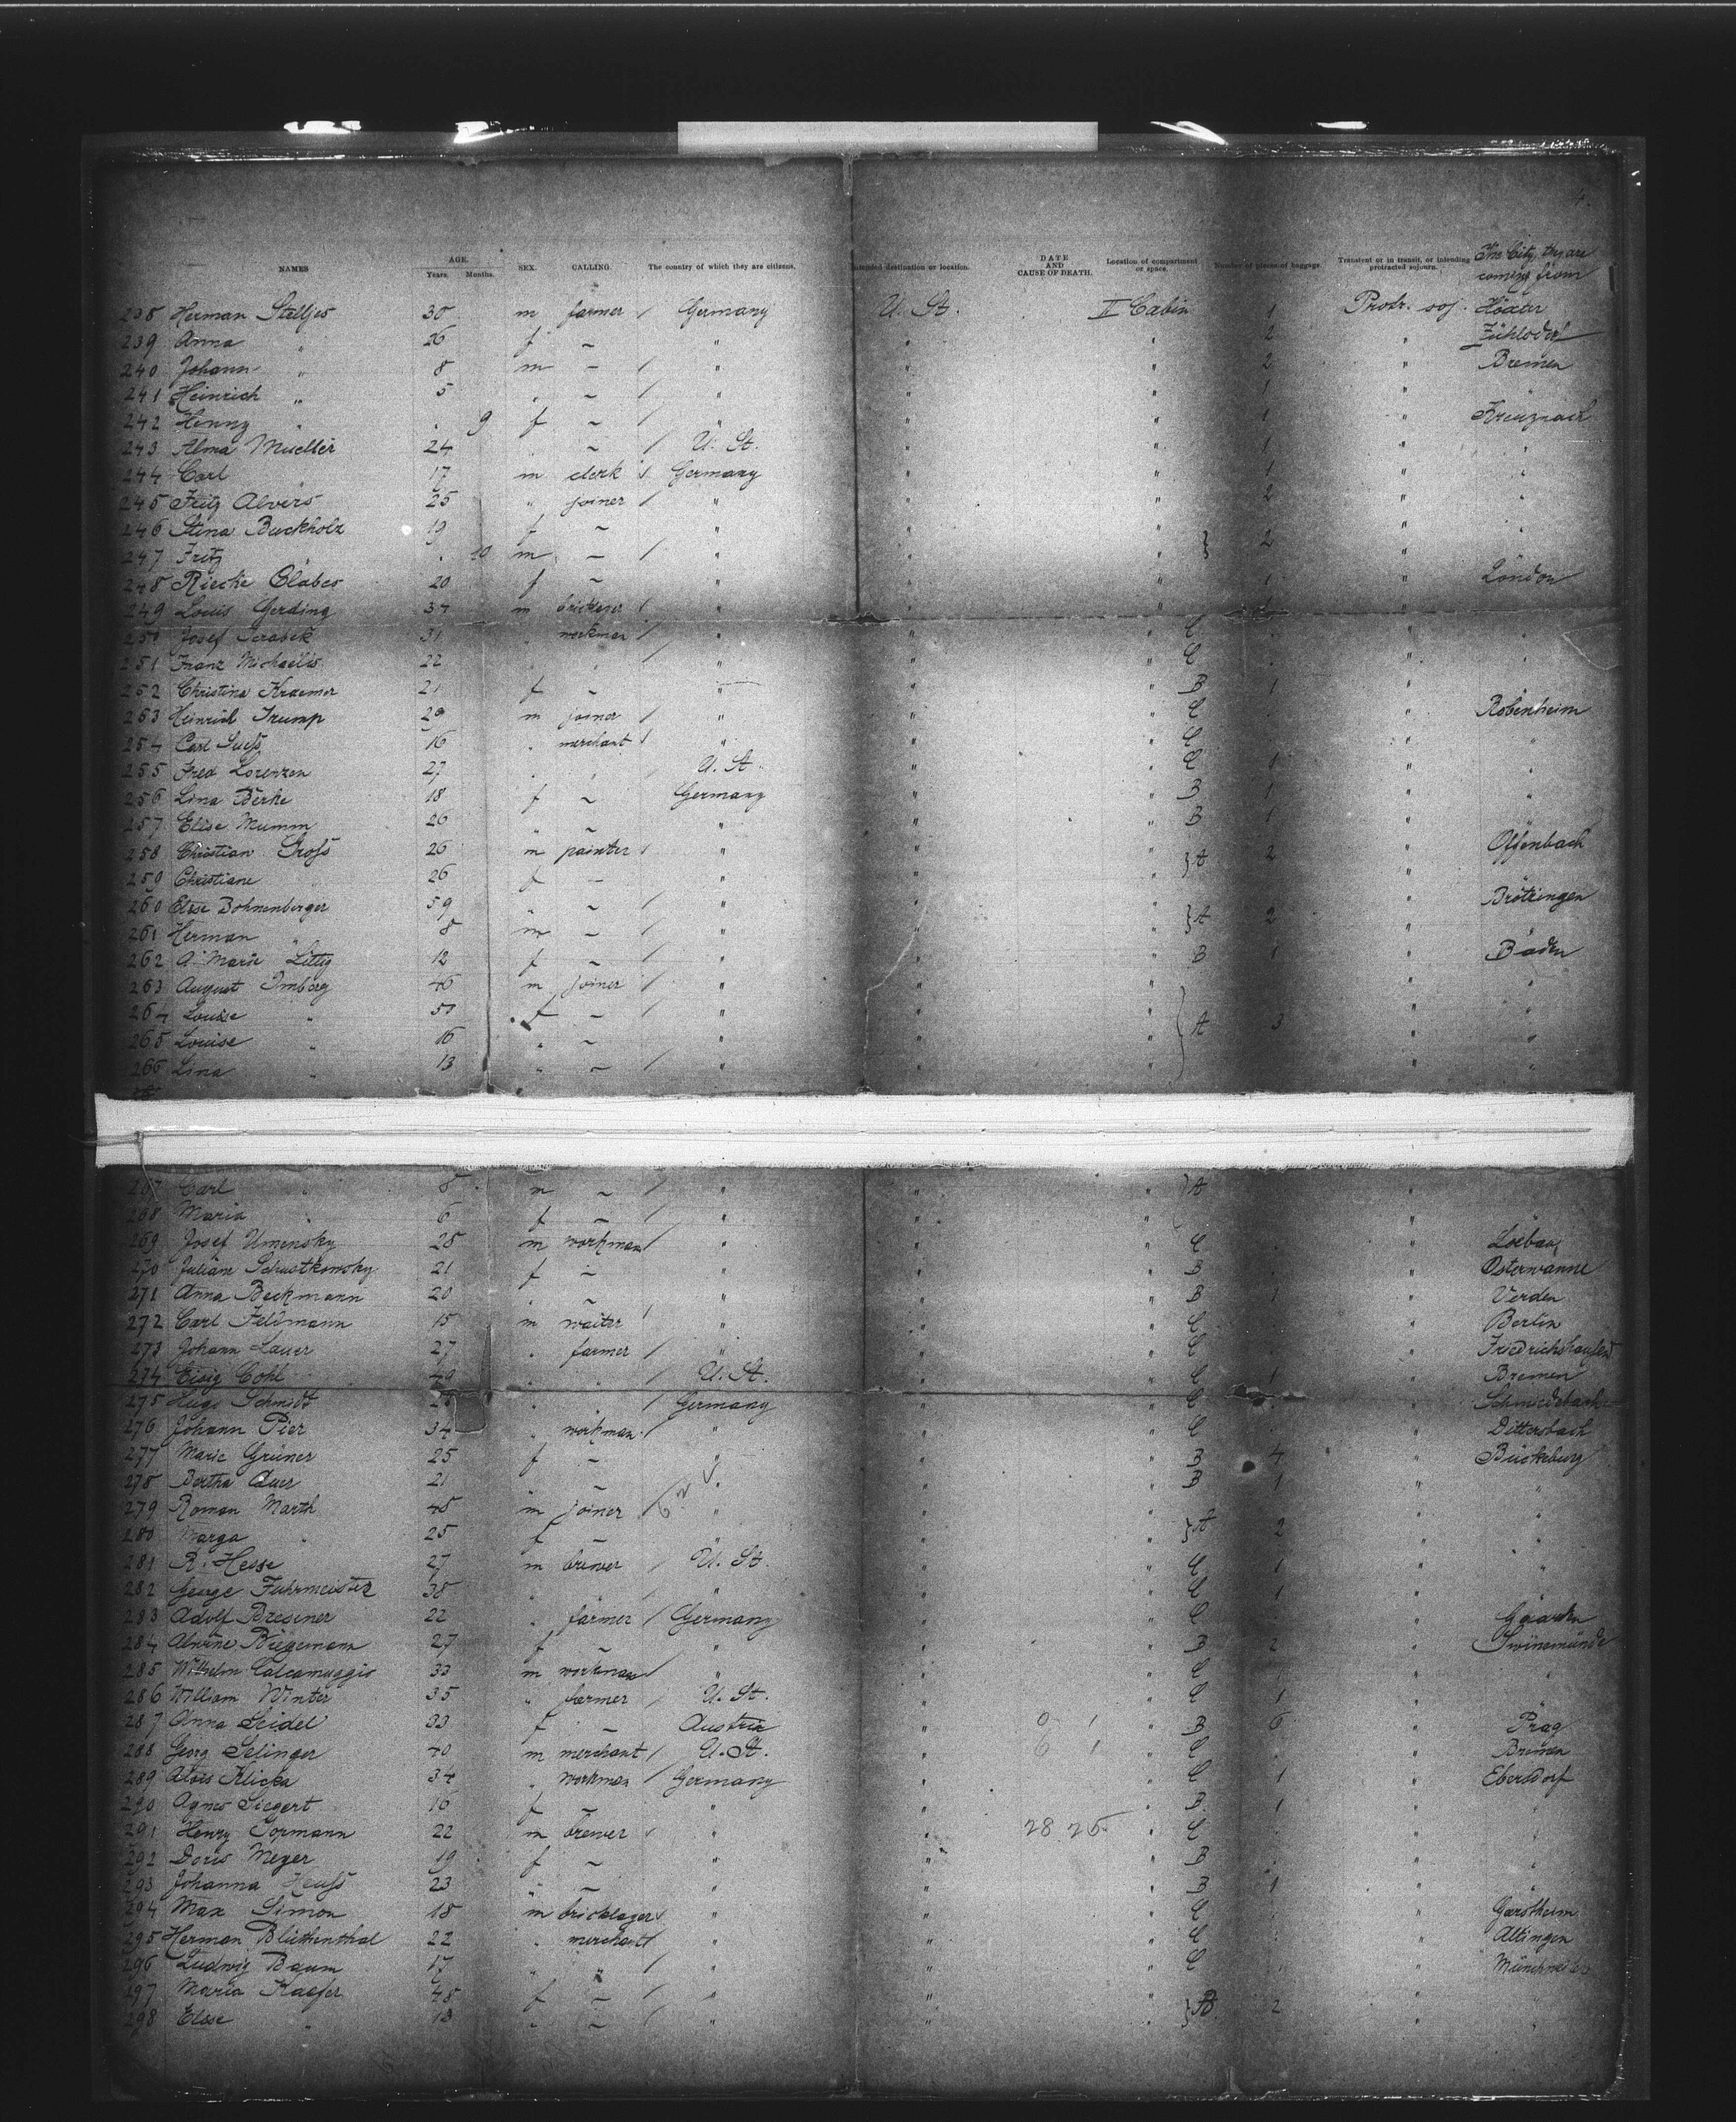 4.
NAMES AGE. Years. Months. SEX. CALLING. The country of which they are citizens. Intended destination or location. DATE AND CAUSE OF DEATH. Location of compartment or space. Number of pieces of baggage. Transient or in transit, or intending protracted sojourn. The City, they are coming from
238 Herman Stelljes 30 m farmer / Germany U. St. II Cabin 1 Protr. soj. Höxter
239 Anna " 26 f ~ " " " 2 "
240 Johann " 8 m ~ / " " " 2 " Bremen
241 Heinrich " 5 " ~ / " " " 1 "
242 Henny " . 9 f ~ / " " " 1 " Kreuznach
243 Alma Mueller 24 " ~ / U. St. " " 1 " "
244 Carl " 17 m clerk / Germany " " 1 " "
245 Fritz Alvers 25 " joiner / " " " 2 " "
246 Stina Buckholz 19 f ~ " " " " "
247 Fritz " . 10 m ~ / " " " } 2 "
248 Riecke Olabes 20 f ~ " " " 1 " London
249 Louis Gerding 34 m / " " " 1 " "
250 Josef 31 " workman / " " " C . " "
251 Franz Michaelis 22 " " / " " " C . " "
252 Christina Kraemer 21 f ~ " " " B 1 "
253 Heinrich Trump 29 m joiner / " " " C . " Robenheim
254 Carl Suess 16 " merchant / " " " C . " "
255 Fred Lorenzen 27 " " / U. St. " " C 1 " "
256 Lina Berke 18 f ~ Germany " " B 1 " "
257 Elise Mumm 26 " ~ " " " B 1 "
258 Christian Gross 26 m painter / " " " } A 2 " Offenbach
259 Christiane " 26 f ~ " " " "
260 Elise Bohnenberger 59 " ~ / " " " } A 2 " Brötzingen
261 Herman " 8 m ~ / " " " "
262 A. Marie Littig 12 f ~ / " " " B 1 " Baden
263 August Imberg 46 m joiner / " " " " "
264 Louise " 50 f ~ / " " " } A 3 " "
265 Louise " 16 " ~ " " " " "
266 Lina " 13 " ~ / " " " " "
267 Carl " 8 m ~ / " " " } A "
268 Maria " 6 f ~ / " " " "
269 Josef Umensky 28 m workman / " " " C . " Loebau
270 Juliane Schustkowsky 21 f ~ " " " B . " Osterwanne
271 Anna Beckmann 20 " ~ " " " B 1 " Verden
272 Carl Feldmann 15 m waiter / " " " C . " Berlin
273 Johann Lauer 27 " farmer / " " " C . " Friedrichshausen
274 Eisig Cohl 49 " " / U. St. " " C 1 " Bremen
275 Hugo Schmidt " " / Germany " " C . "
276 Johann Pier 34 " workman / " " " C . " Dittersbach
277 Marie Grüner 25 f ~ " " " B 4 " Bückeburg
278 Bertha Auer 21 " ~ " " " B 1 " "
279 Roman Marth 45 m joiner / " " " } A 2 " "
280 Marga " 25 f ~ " " " " "
281 R. Hesse 27 m brewer / U. St. " " C 1 " "
282 George Fuhrmeister 38 " " / " " " C 1 "
283 Adolf Bresener 22 " farmer / Germany " " C . " Gaarden
284 Alwine Biegemann 27 f ~ " " " B 2 " Swinemünde
285 Wilhelm Calcamuggio 33 m workman / " " " C . " "
286 William Winter 35 " farmer / U. St. " " C 1 "
287 Anna Seidel 33 f ~ Austria " " B 6 " Prag
288 Georg Selinger 40 m merchant / U. St. " " C . " Bremen
289 Alois Klicka 34 " workman / Germany " " C 1 " Ebersdorf
290 Agnes Siegert 16 f ~ " " " B 1 " "
291 Henry Topmann 22 m brewer / " " " C . " "
292 Doris Meyer 19 f ~ " " " B . " "
293 Johanna Heuss 23 " ~ " " " B 1 " "
294 Max Simon 18 m bricklayer / " " " C . " Garstheim
295 Herman Blüthenthal 22 " merchant / " " " C . " Altingen
296 Ludwig Baum 17 " " / " " " C " "
297 Maria Kaefer 48 f ~ / " " " } A 2 " "
298 Elise " 13 " ~ " " " " "